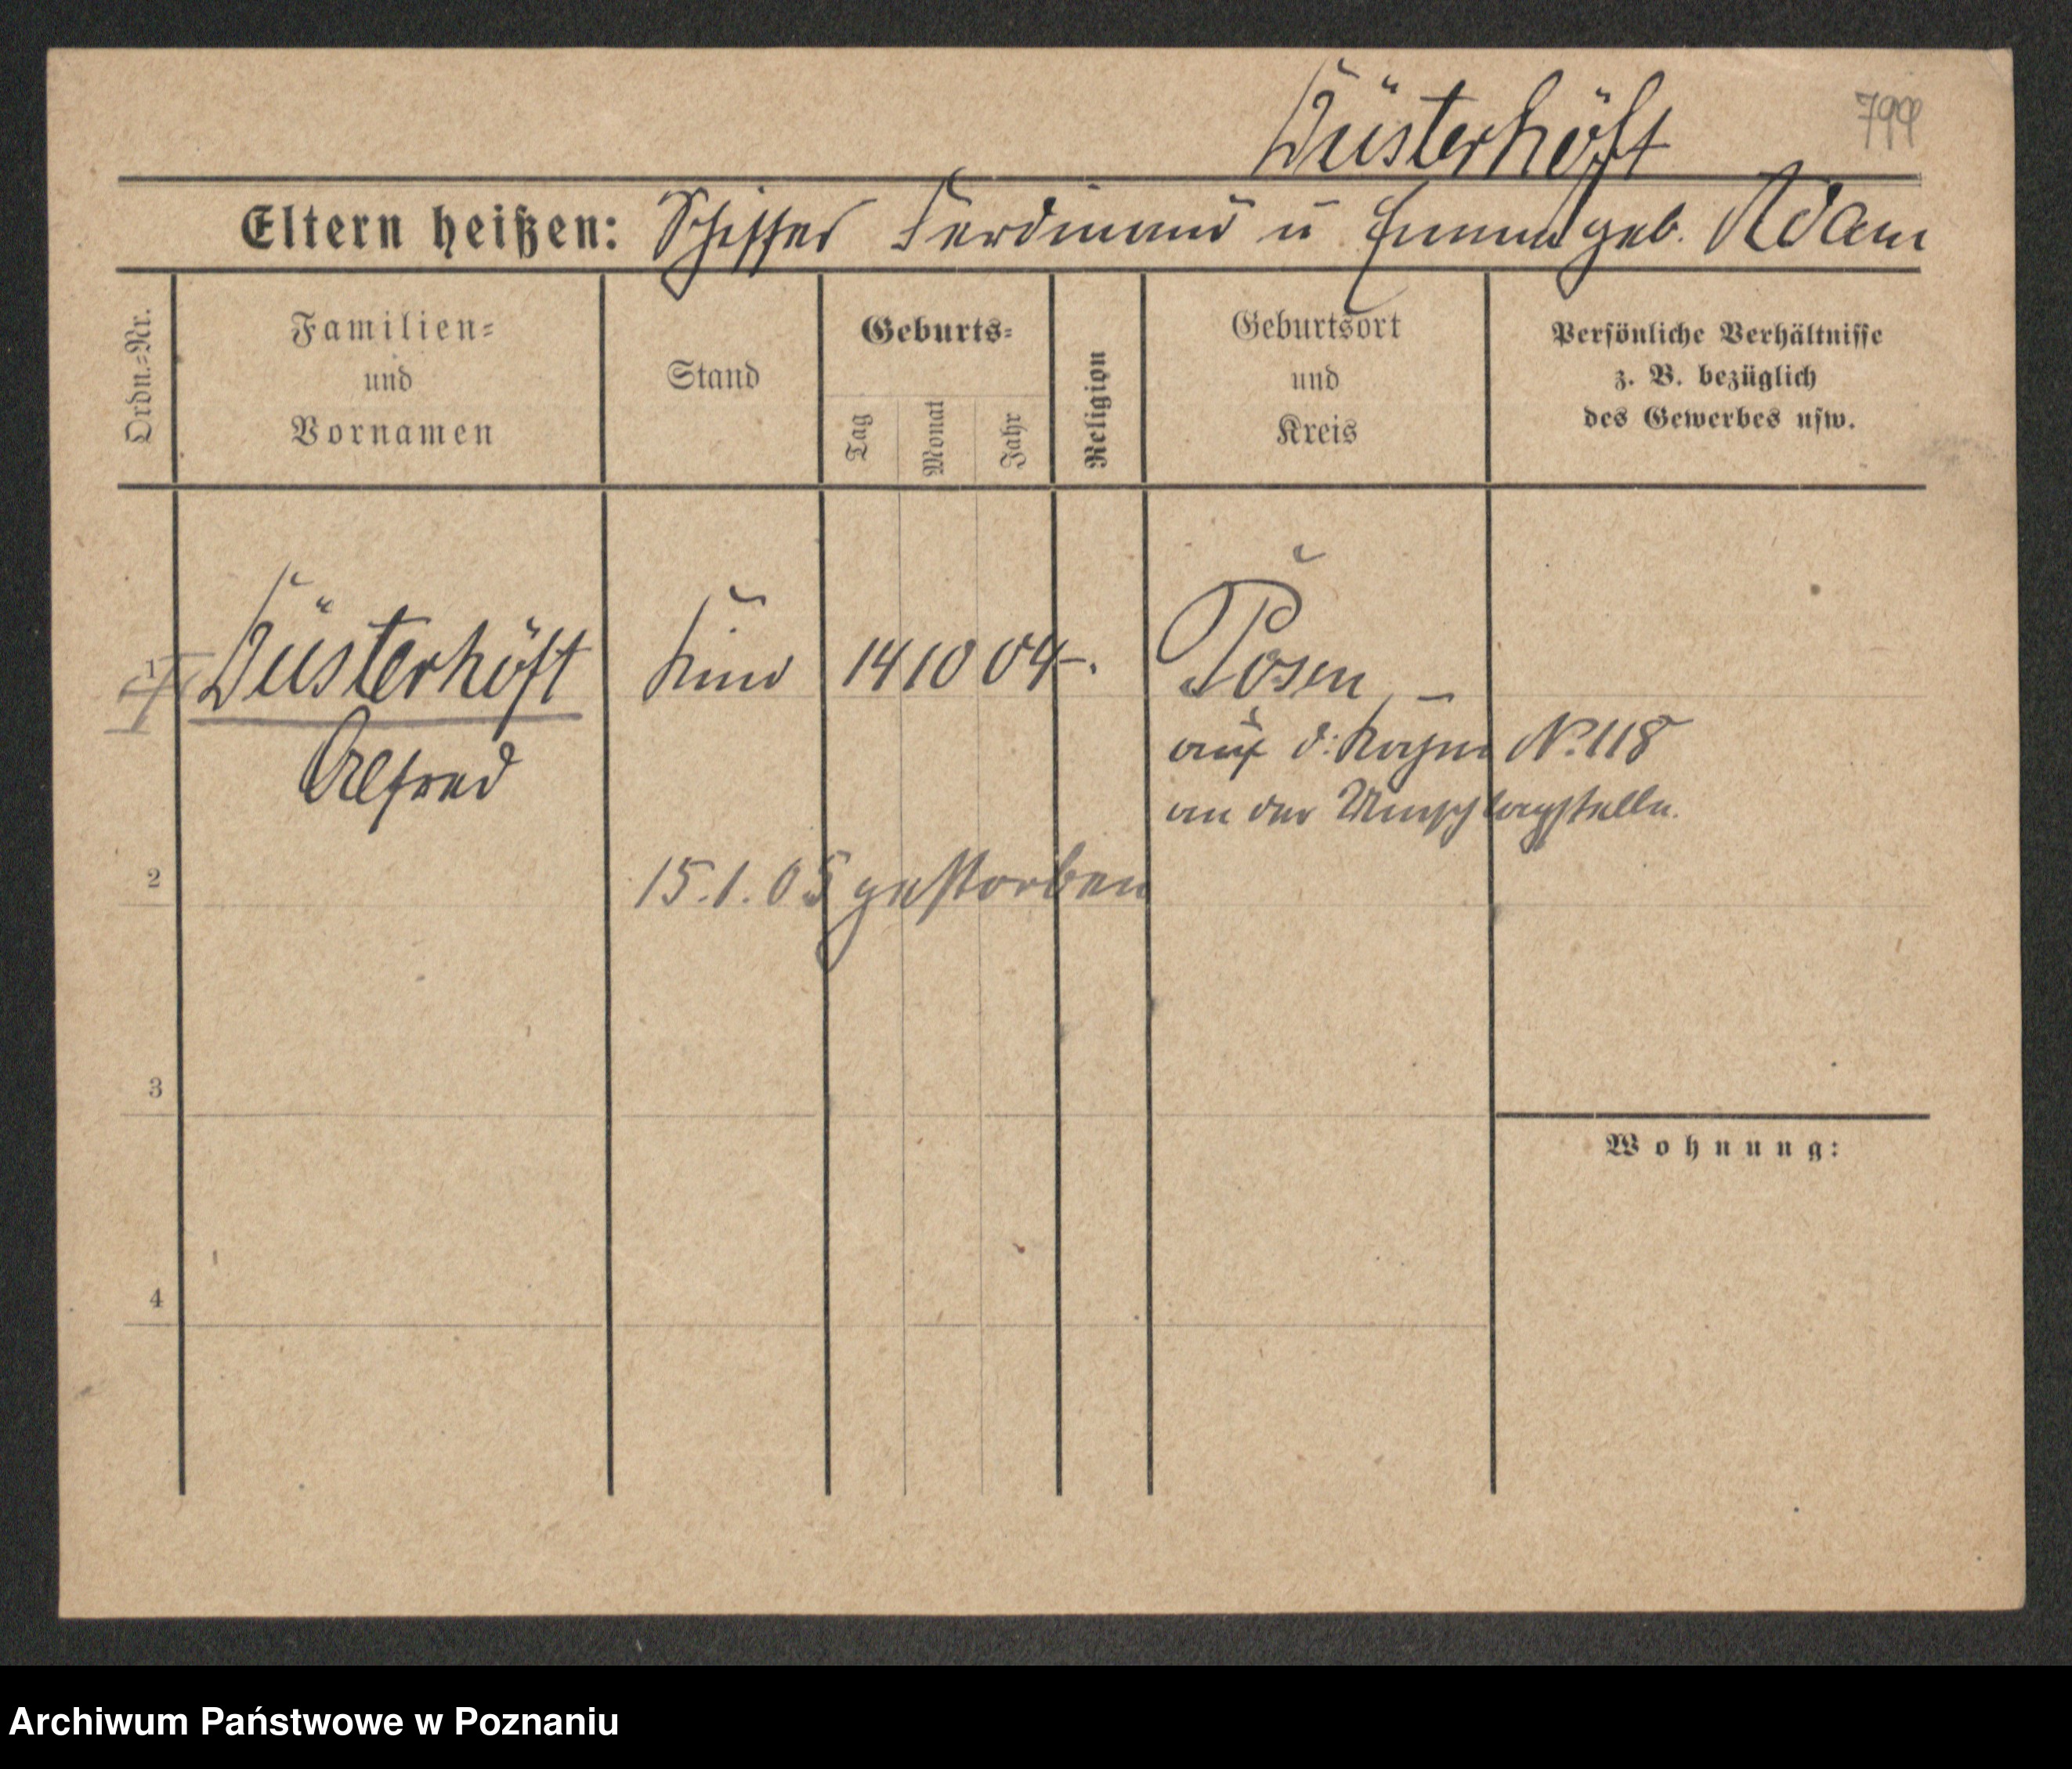 Düsterhöft
799
Eltern heißen: Schiffer Ferdinand u Emma geb. Adam
Ordn.=Nr.
Familien=
und
Vornamen
Stand
Geburts=
Tag
Monat
Jahr
Religion
Geburtsort
und
Kreis
Persönliche Verhältnisse
z. B. bezüglich
des Gewerbes usw.
1
Düsterhöft Kind 14 10 04 –. Posen –
auf d: Kahne No. 118
Alfred
an der Umschlagstelle.
2
15.1.05 gestorben
3
Wohnung:
4
Archiwum Państwowe w Poznaniu